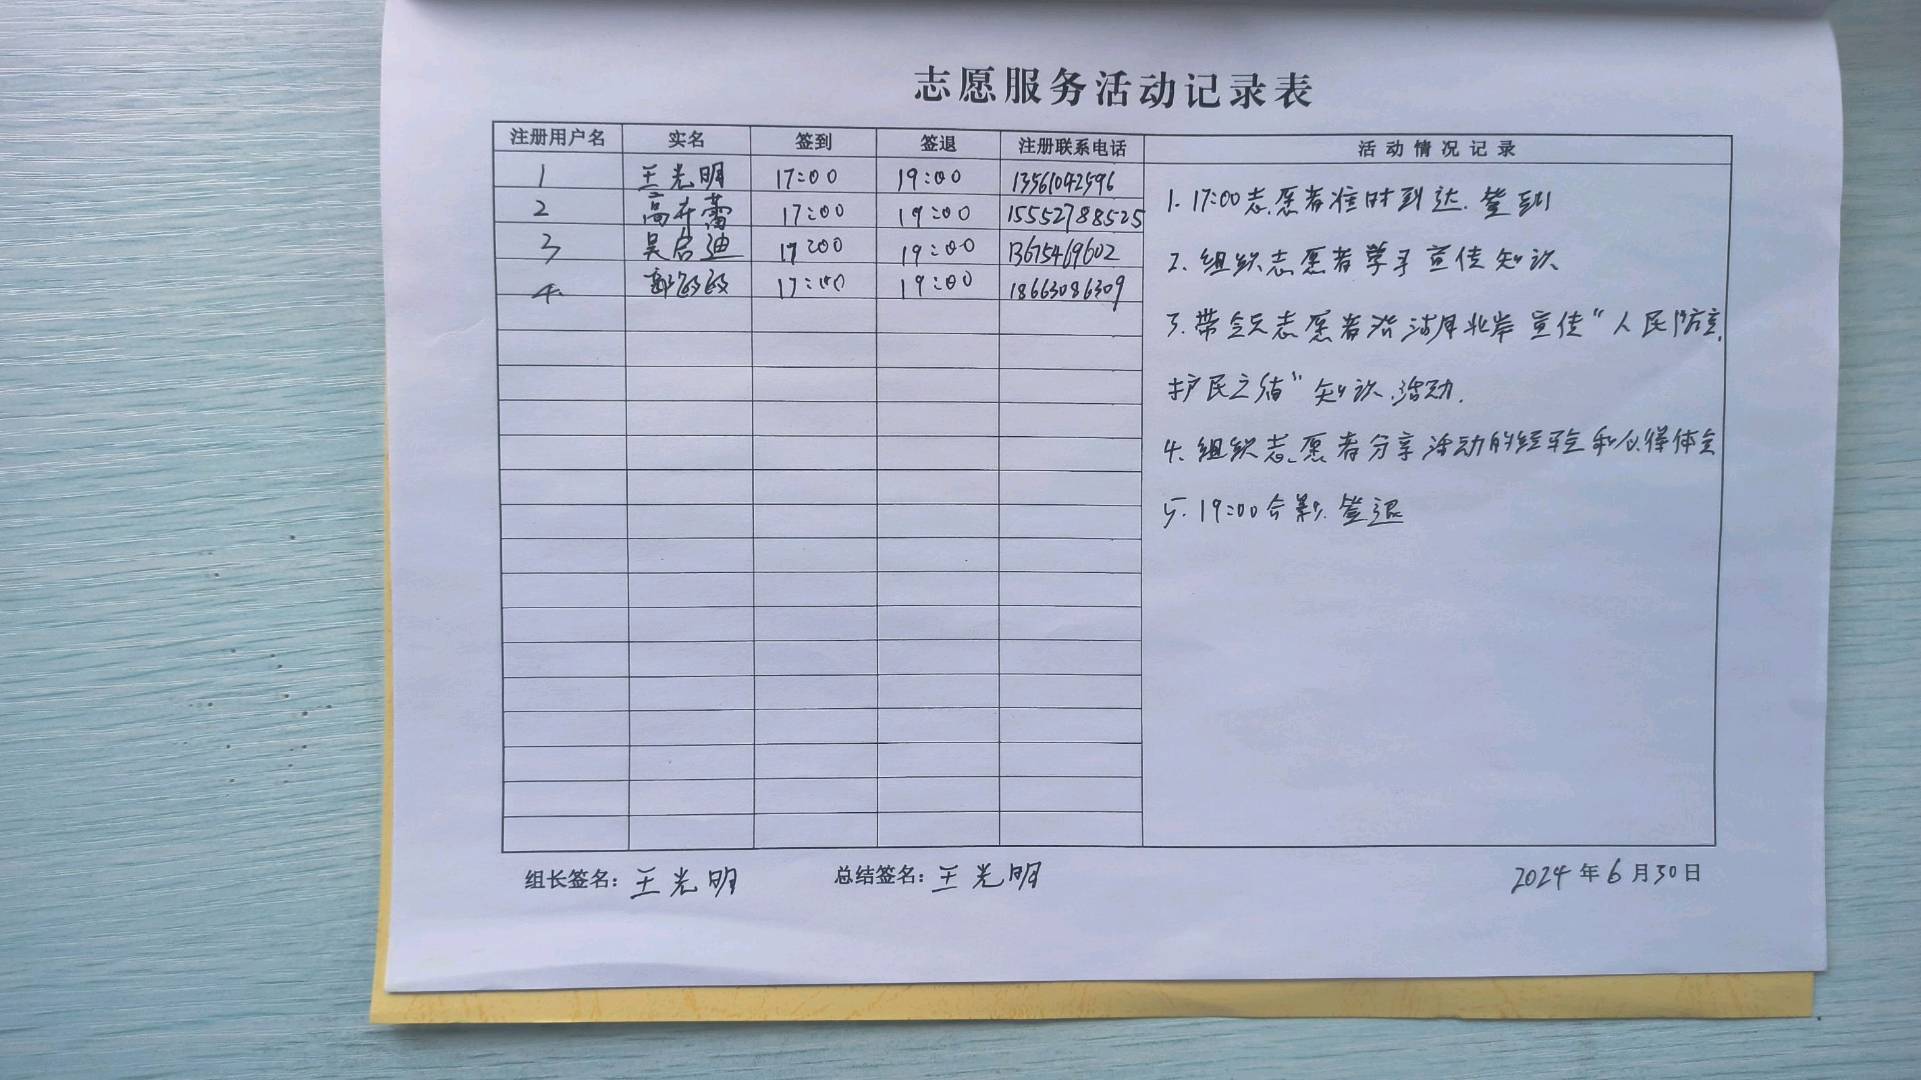 志愿服务活动记录表
注册用户名 实名 签到 签退 注册联系电话 活动情况记录
1 王光明 17:00 19:00 13561042596
2 高在蕾 17:00 19:00 15552788525
3 吴启迪 17:00 19:00 13675469602
4. 17:00 19:00 18663086309
1. 17:00志愿者准时到达.签到
2. 组织志愿者学习宣传知识
3. 带领志愿者沿湖北岸宣传“人民防空.
护民之盾”知识.活动.
4. 组织志愿者分享活动的经验和心得体会
5. 19:00合影.签退
组长签名：王光明 总结签名：王光明 2024年6月30日